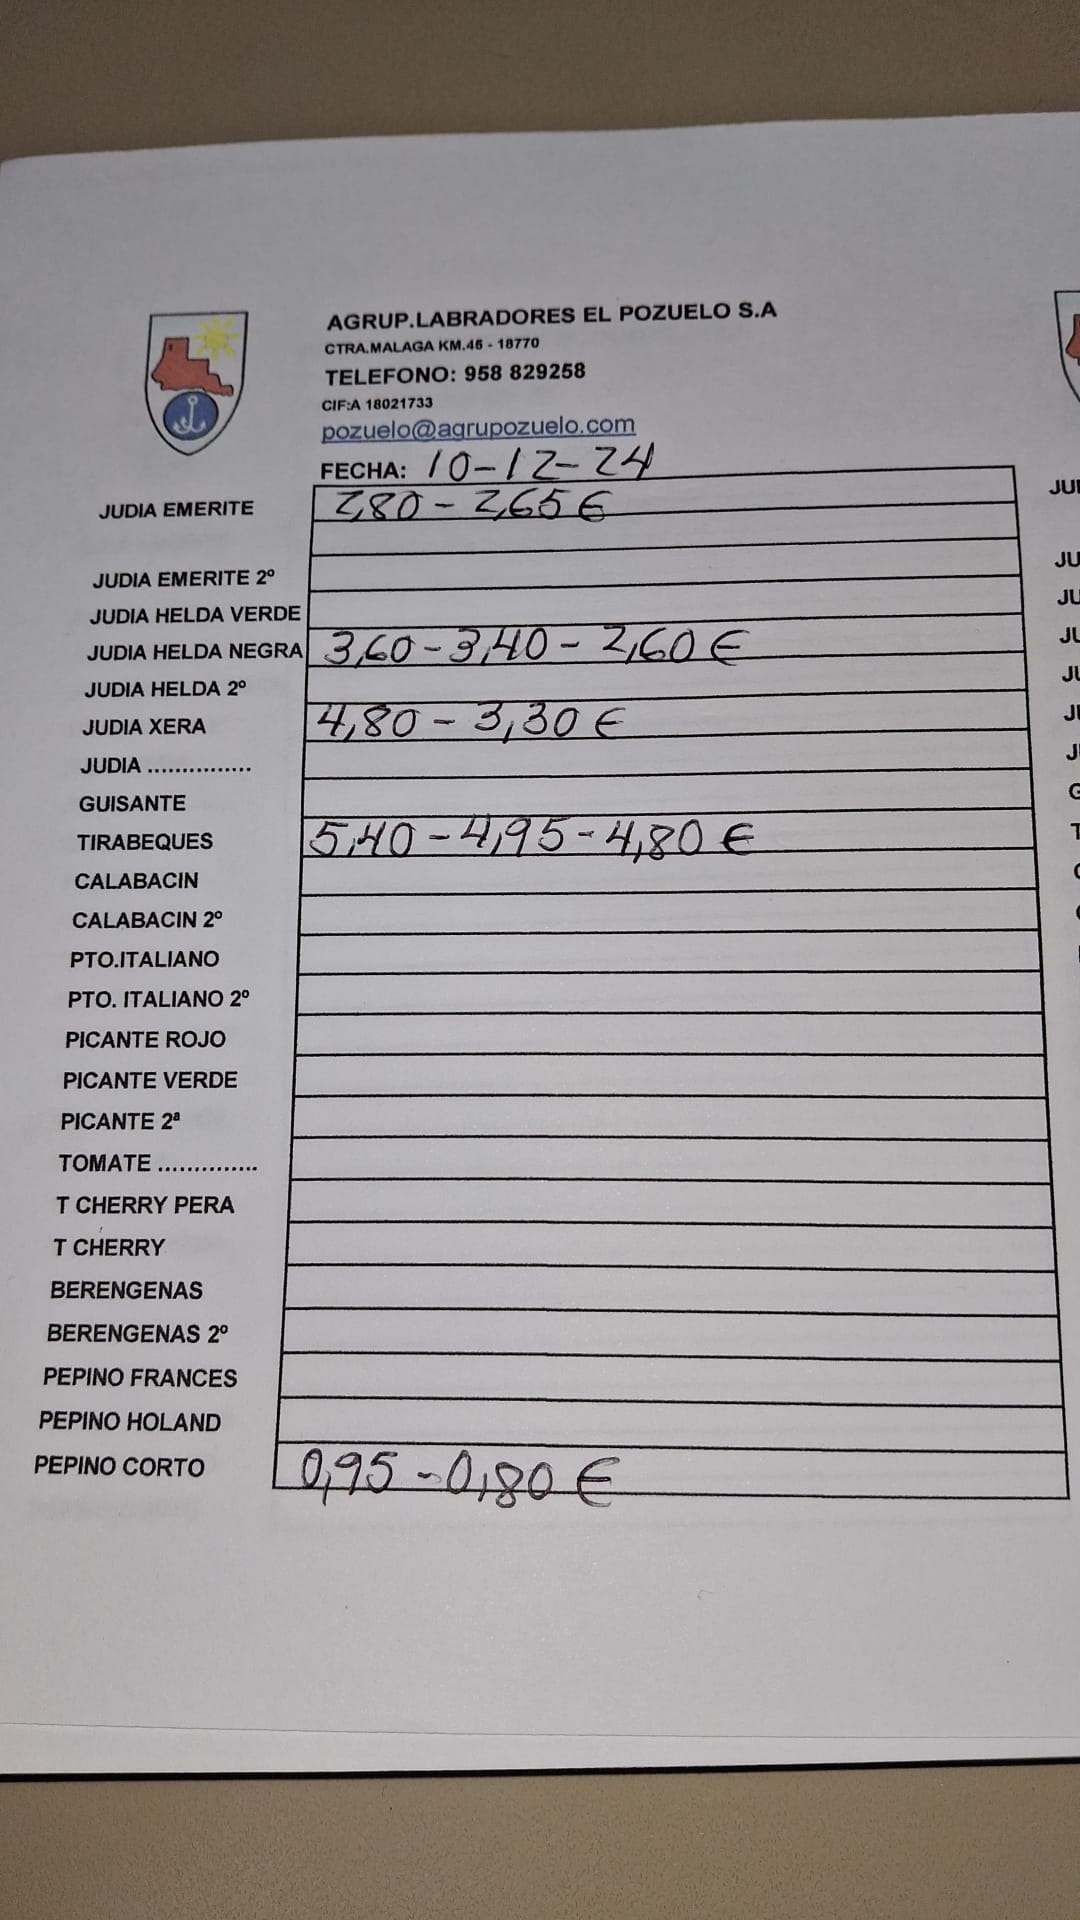 AGRUP.LABRADORES EL POZUELO S.A
CTRA.MALAGA KM.45 - 18770
TELEFONO: 958 829258
CIF:A 18021733
pozuelo@agrupozuelo.com
FECHA: 10-12-24
JUDIA EMERITE 2,80 - 2,65 €
JUDIA EMERITE 2º
JUDIA HELDA VERDE
JUDIA HELDA NEGRA 3,60 - 3,40 - 2,60 €
JUDIA HELDA 2º
JUDIA XERA 4,80 - 3,30 €
JUDIA ...............
GUISANTE
TIRABEQUES 5,40 - 4,95 - 4,80 €
CALABACIN
CALABACIN 2º
PTO.ITALIANO
PTO. ITALIANO 2º
PICANTE ROJO
PICANTE VERDE
PICANTE 2ª
TOMATE ..............
T CHERRY PERA
T CHERRY
BERENGENAS
BERENGENAS 2º
PEPINO FRANCES
PEPINO HOLAND
PEPINO CORTO 0,95 - 0,80 €